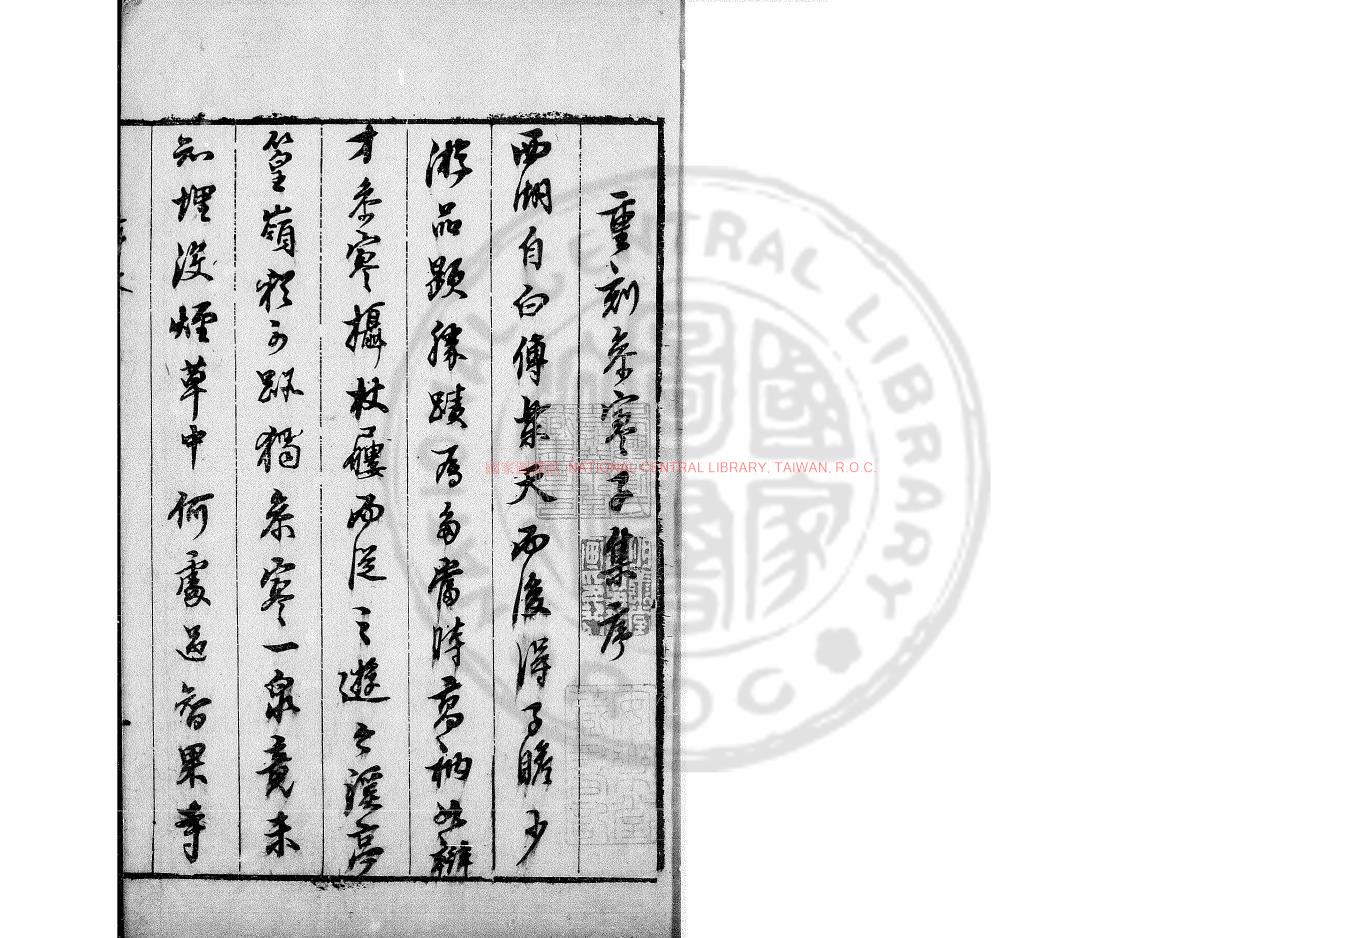 重刻參寥子集序
西湖自白傅樂天而後得子瞻少
游品題勝蹟為多當時高衲如辯
才參寥攝杖屨而從之遊之溪亭
篁嶺猶可跡獨參寥一泉竟未
知埋沒煙草中何處過智果寺
NATIONAL CENTRAL LIBRARY, TAIWAN, R.O.C.
CENTRAL LIBRARY